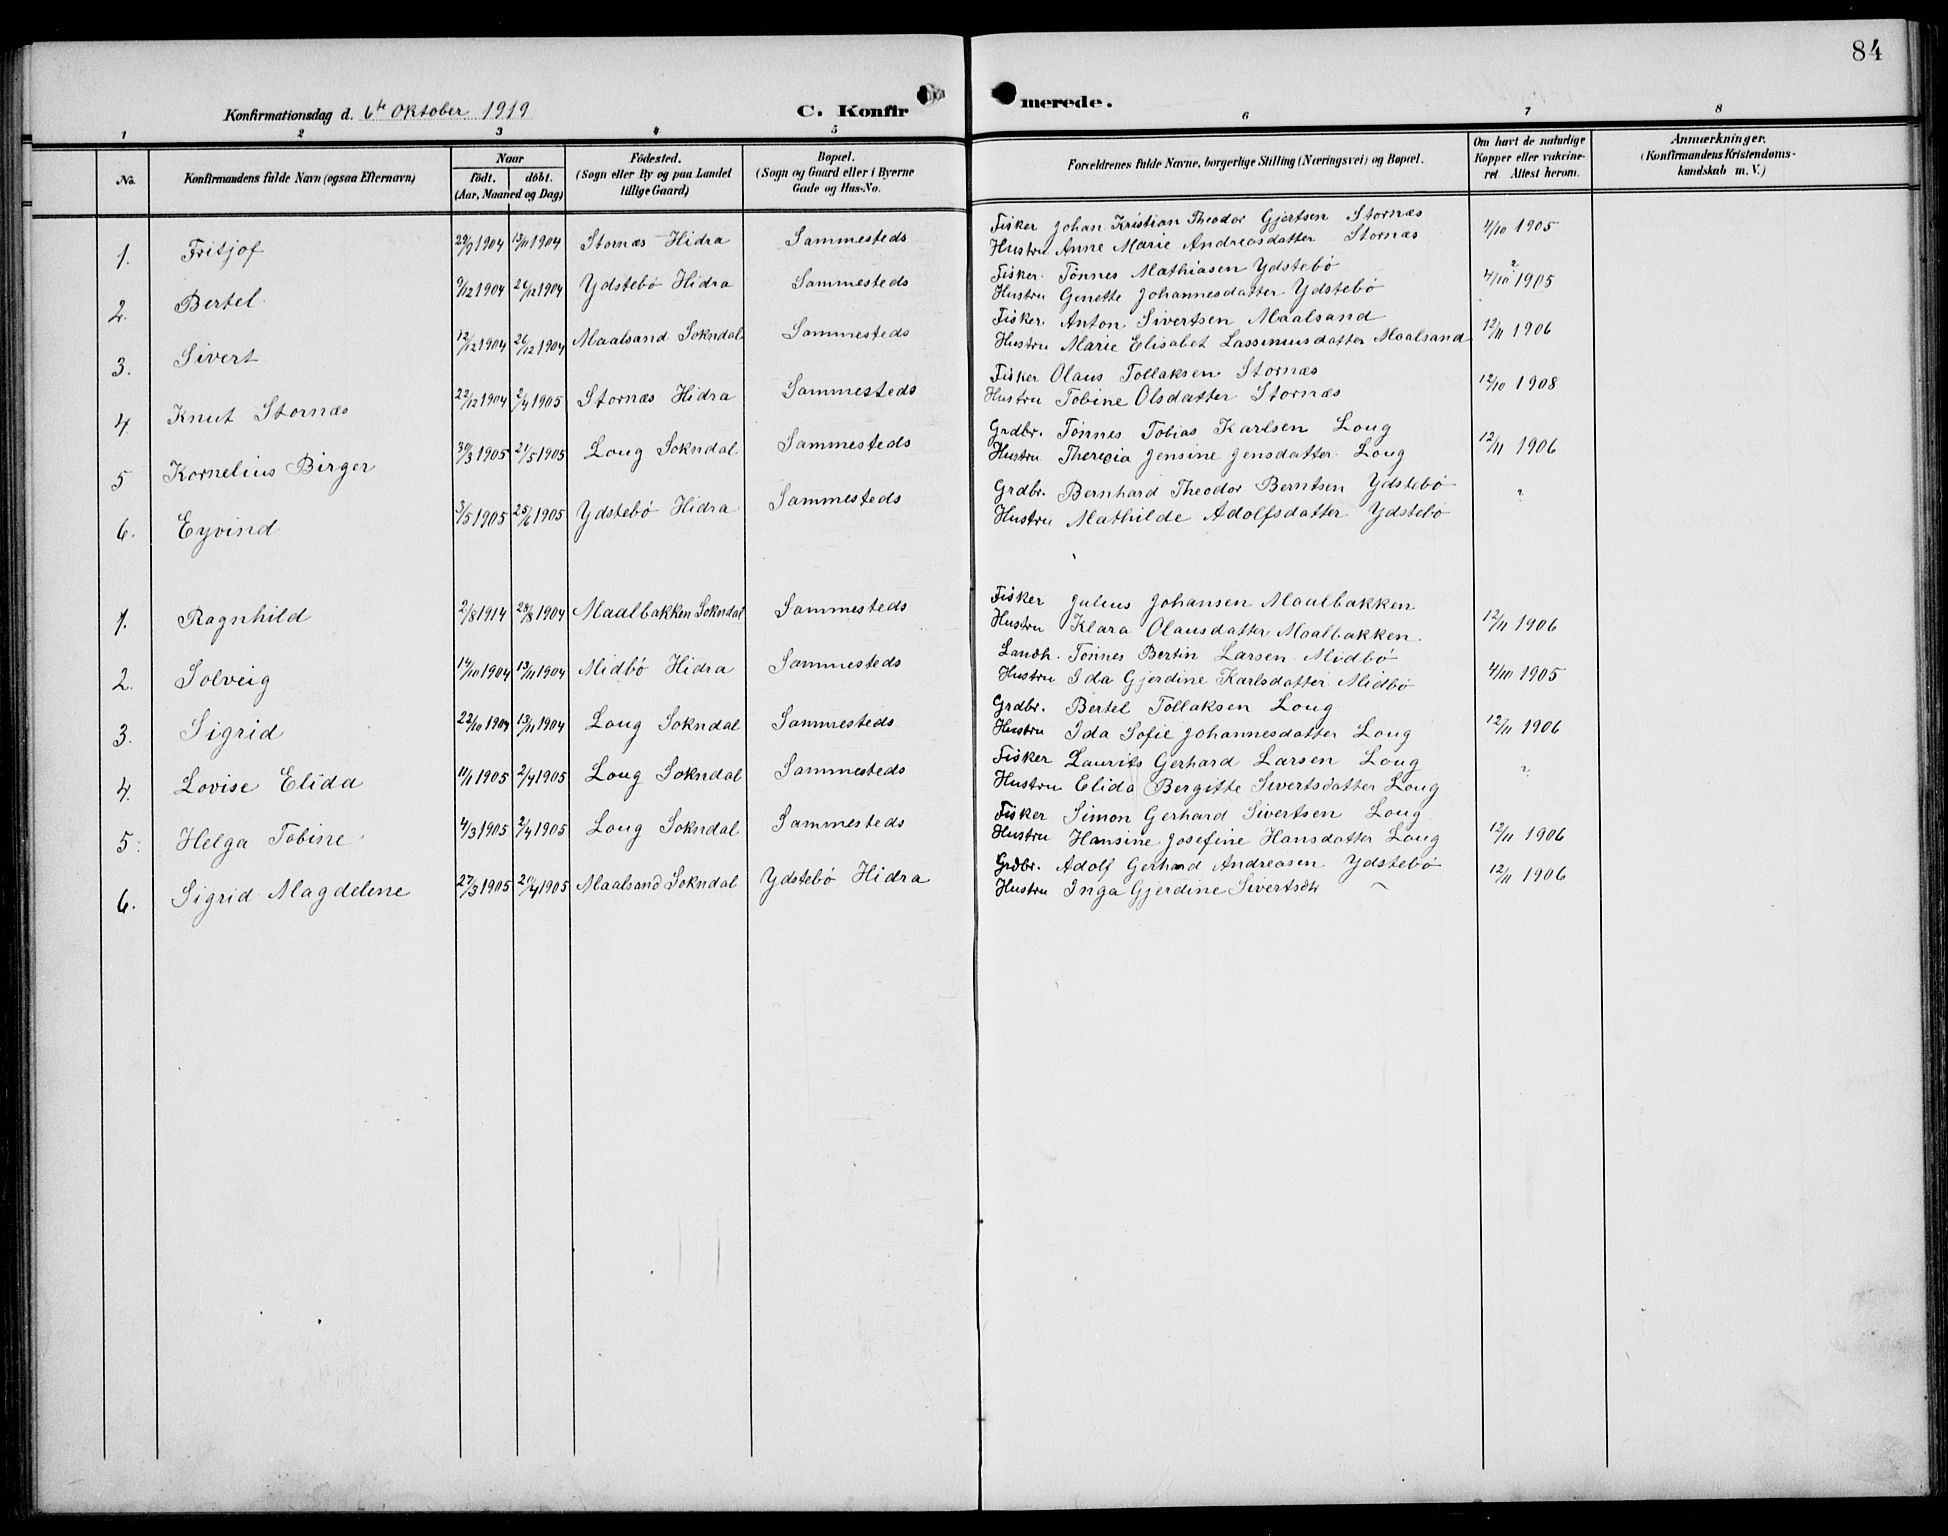 84
Konfirmationsdag d. 6te Oktober 1919 C. Konfirmerede.
1 2 3 4 5 6 7 8
No. Konfirmandens fulde Navn (ogsaa Efternavn) Naar födt. döbt. (Aar, Maaned og Dag) Födested. (Sogn eller By og paa Landet tillige Gaard) Bopæl. (Sogn og Gaard eller i Byerne Gade og Hus-No. Forældrenes fulde Navne, borgerlige Stilling (Næringsvei) og Bopæl. Om havt de naturlige Kopper eller vakcineret. Attest herom. Anmærkninger. (Konfirmandens Kristendomskundskab m. V.)
1. Fritjof 29/9 1904 13/11 1904 Stornæs Hidra Sammesteds Fisker Johan Kristian Theodor Gjertsen Stornæs 4/10 1905
Hustru Anne Marie Andreasdatter Stornæs
2. Bertel 9/12 1904 26/12 1904 Ydstebø Hidra Sammesteds Fisker. Tønnes Mathiasen Ydstebø 4/10 ? 1905
Hustru Genette Johannesdatter Ydstebø
3. Sivert 12/12 1904 26/12 1904 Maalsand Sokndal Sammesteds Fisker. Anton Sivertsen Maalsand 12/11 1906
Hustru Marie Elisabet Lassinusdatter Maalsand
4. Knut Stornæs 22/12 1904 2/4 1905 Stornæs Hidra Sammesteds Fisker Olaus Tollaksen Stornæs 12/10 1908
Hustru Tobine Olsdatter Stornæs
5 Kornelius Birger 30/3 1905 21/5 1905 Loug Sokndal Sammesteds Grdbr. Tønnes Tobias Karlsen Loug 12/11 1906
Hustru Therecia Jensine Jensdatter Loug
6. Eyvind 3/5 1905 25/6 1905 Ydstebø Hidra Sammesteds Grdbr. Bernhard Theodor Berntsen Ydstebø ?
Hustru Mathilde Adolfsdatter Ydstebø
1. Ragnhild 2/8 1914 28/8 1904 Maalbakken Sokndal Sammesteds Fisker Julius Johansen Maalbakken 12/11 1906
Hustru Klara Olausdatter Maalbakken.
2. Solveig 14/10 1904 13/11 1904 Midbø Hidra Sammesteds Landh. Tønnes Bertin Larsen Midbø 4/10 1905
Hustru Ida Gjerdine Karlsdatter Midbø
3. Sigrid 22/10 1904 13/11 1904 Loug Sokndal Sammesteds Grdbr. Bertel Tollaksen Loug 12/11 1906
Hustru Ida Sofie Johannesdatter Loug
4. Lovise Elida 11/1 1905 2/4 1905 Loug Sokndal Sammesteds Fisker Laurits Gerhard Larsen Loug ?
Hustru Elida Bergitte Sivertsdatter Loug
5. Helga Tobine 4/3 1905 2/4 1905 Loug Sokndal Sammesteds Fisker Simon Gerhard Sivertsen Loug 12/11 1906
Hustru Hansine Josefine Hansdatter Loug
6. Sigrid Magdelene 27/3 1905 20/4 1905 Maalsand Sokndal Ydstebø Hidra Grdbr. Adolf Gerhard Andreasen Ydstebø 12/11 1906
Hustru Inga Gjerdine Sivertsdtr